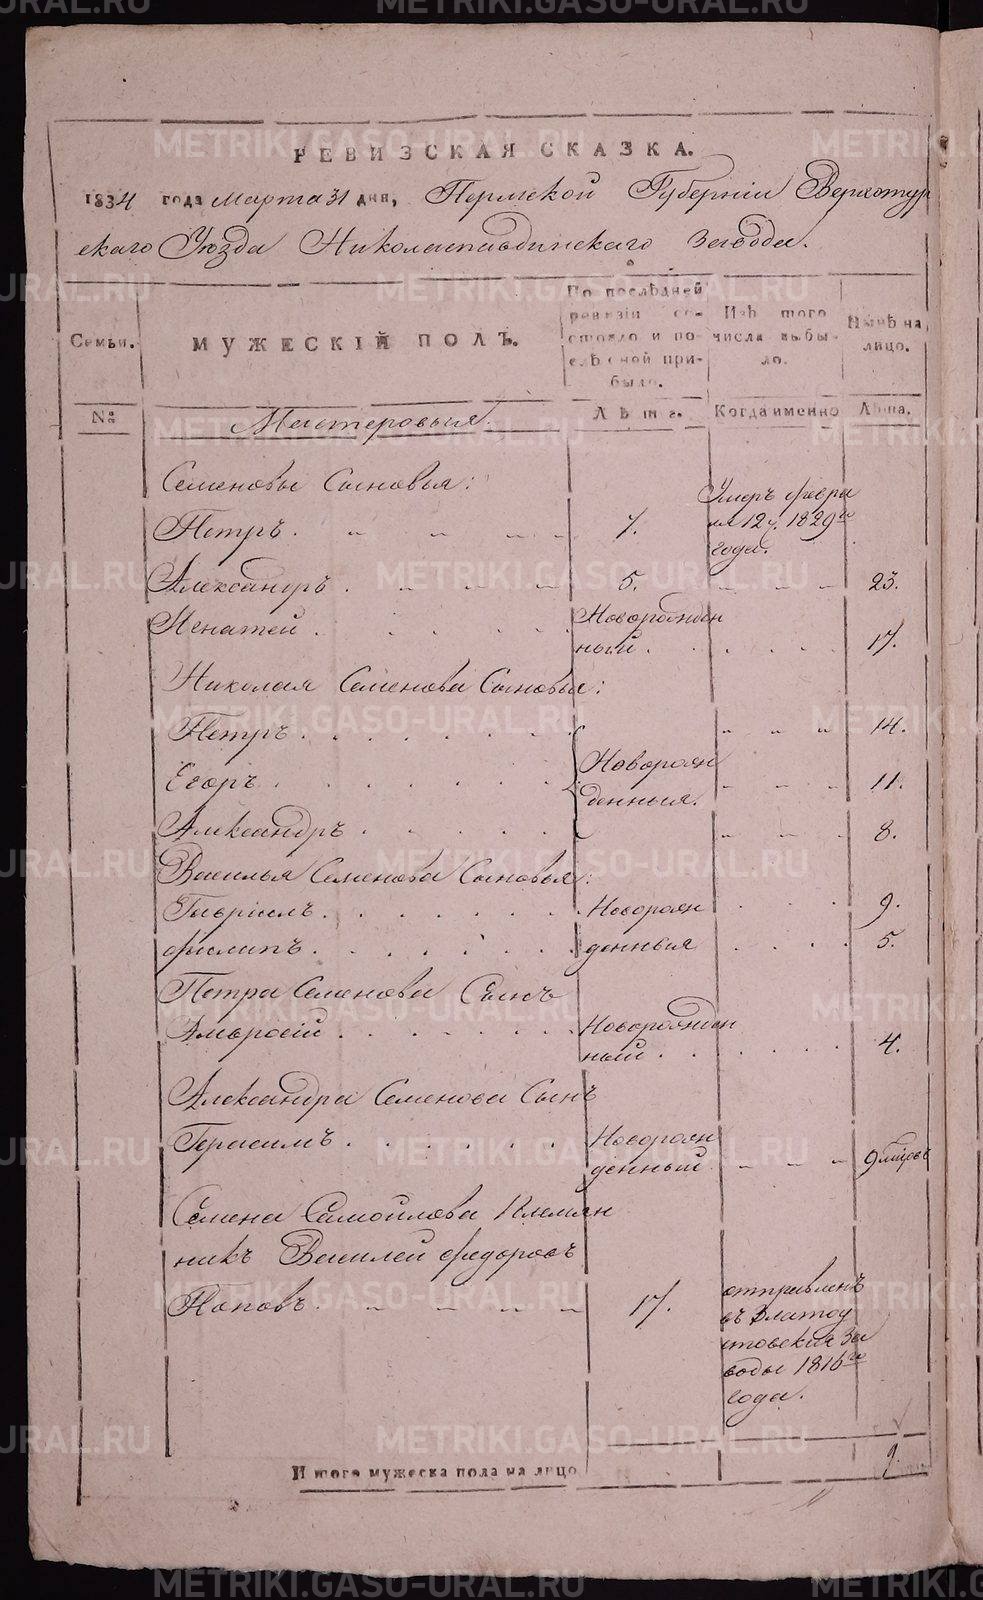 РЕВИЗСКАЯ СКАЗКА.
1834 года Марта 31 дня, Пермской Губерніи Верхотур
скаго Уѣзда Николаепавдинскаго Завода.
Семьи.
МУЖЕСКІЙ ПОЛЪ.
По послѣдней
ревизіи со-
стояло и по-
слѣ оной при-
было.
Изъ того
числа выбы-
ло.
Нынѣ на
лицо.
№
Мастеровыя.
Лѣта.
Когда именно
Лѣта.
Семеновы Сыновья:
Петръ. 7. Умеръ февра
ля 12 ч. 1829го
года.
Александръ. 5. 23.
Игнатей. Новорожден
ный. 17.
Николая Семенова Сыновья:
Петръ. 14.
Егоръ. Новорож
денныя. 11.
Александръ. 8.
Василья Семенова Сыновья:
Гавріилъ. Новорож 9.
Филипъ. денныя 5.
Петра Семенова Сынъ
Амвросій. Новорожден
ный. 4.
Александра Семенова Сынъ
Герасимъ. Новорож
денный. 9 мѣсяц
Семена Самойлова Племян
никъ Василей Федоровъ
Поповъ. 17. отправленъ
въ Златоу
стовския За
воды 1816го
года.
Итого мужеска пола на лицо 9.